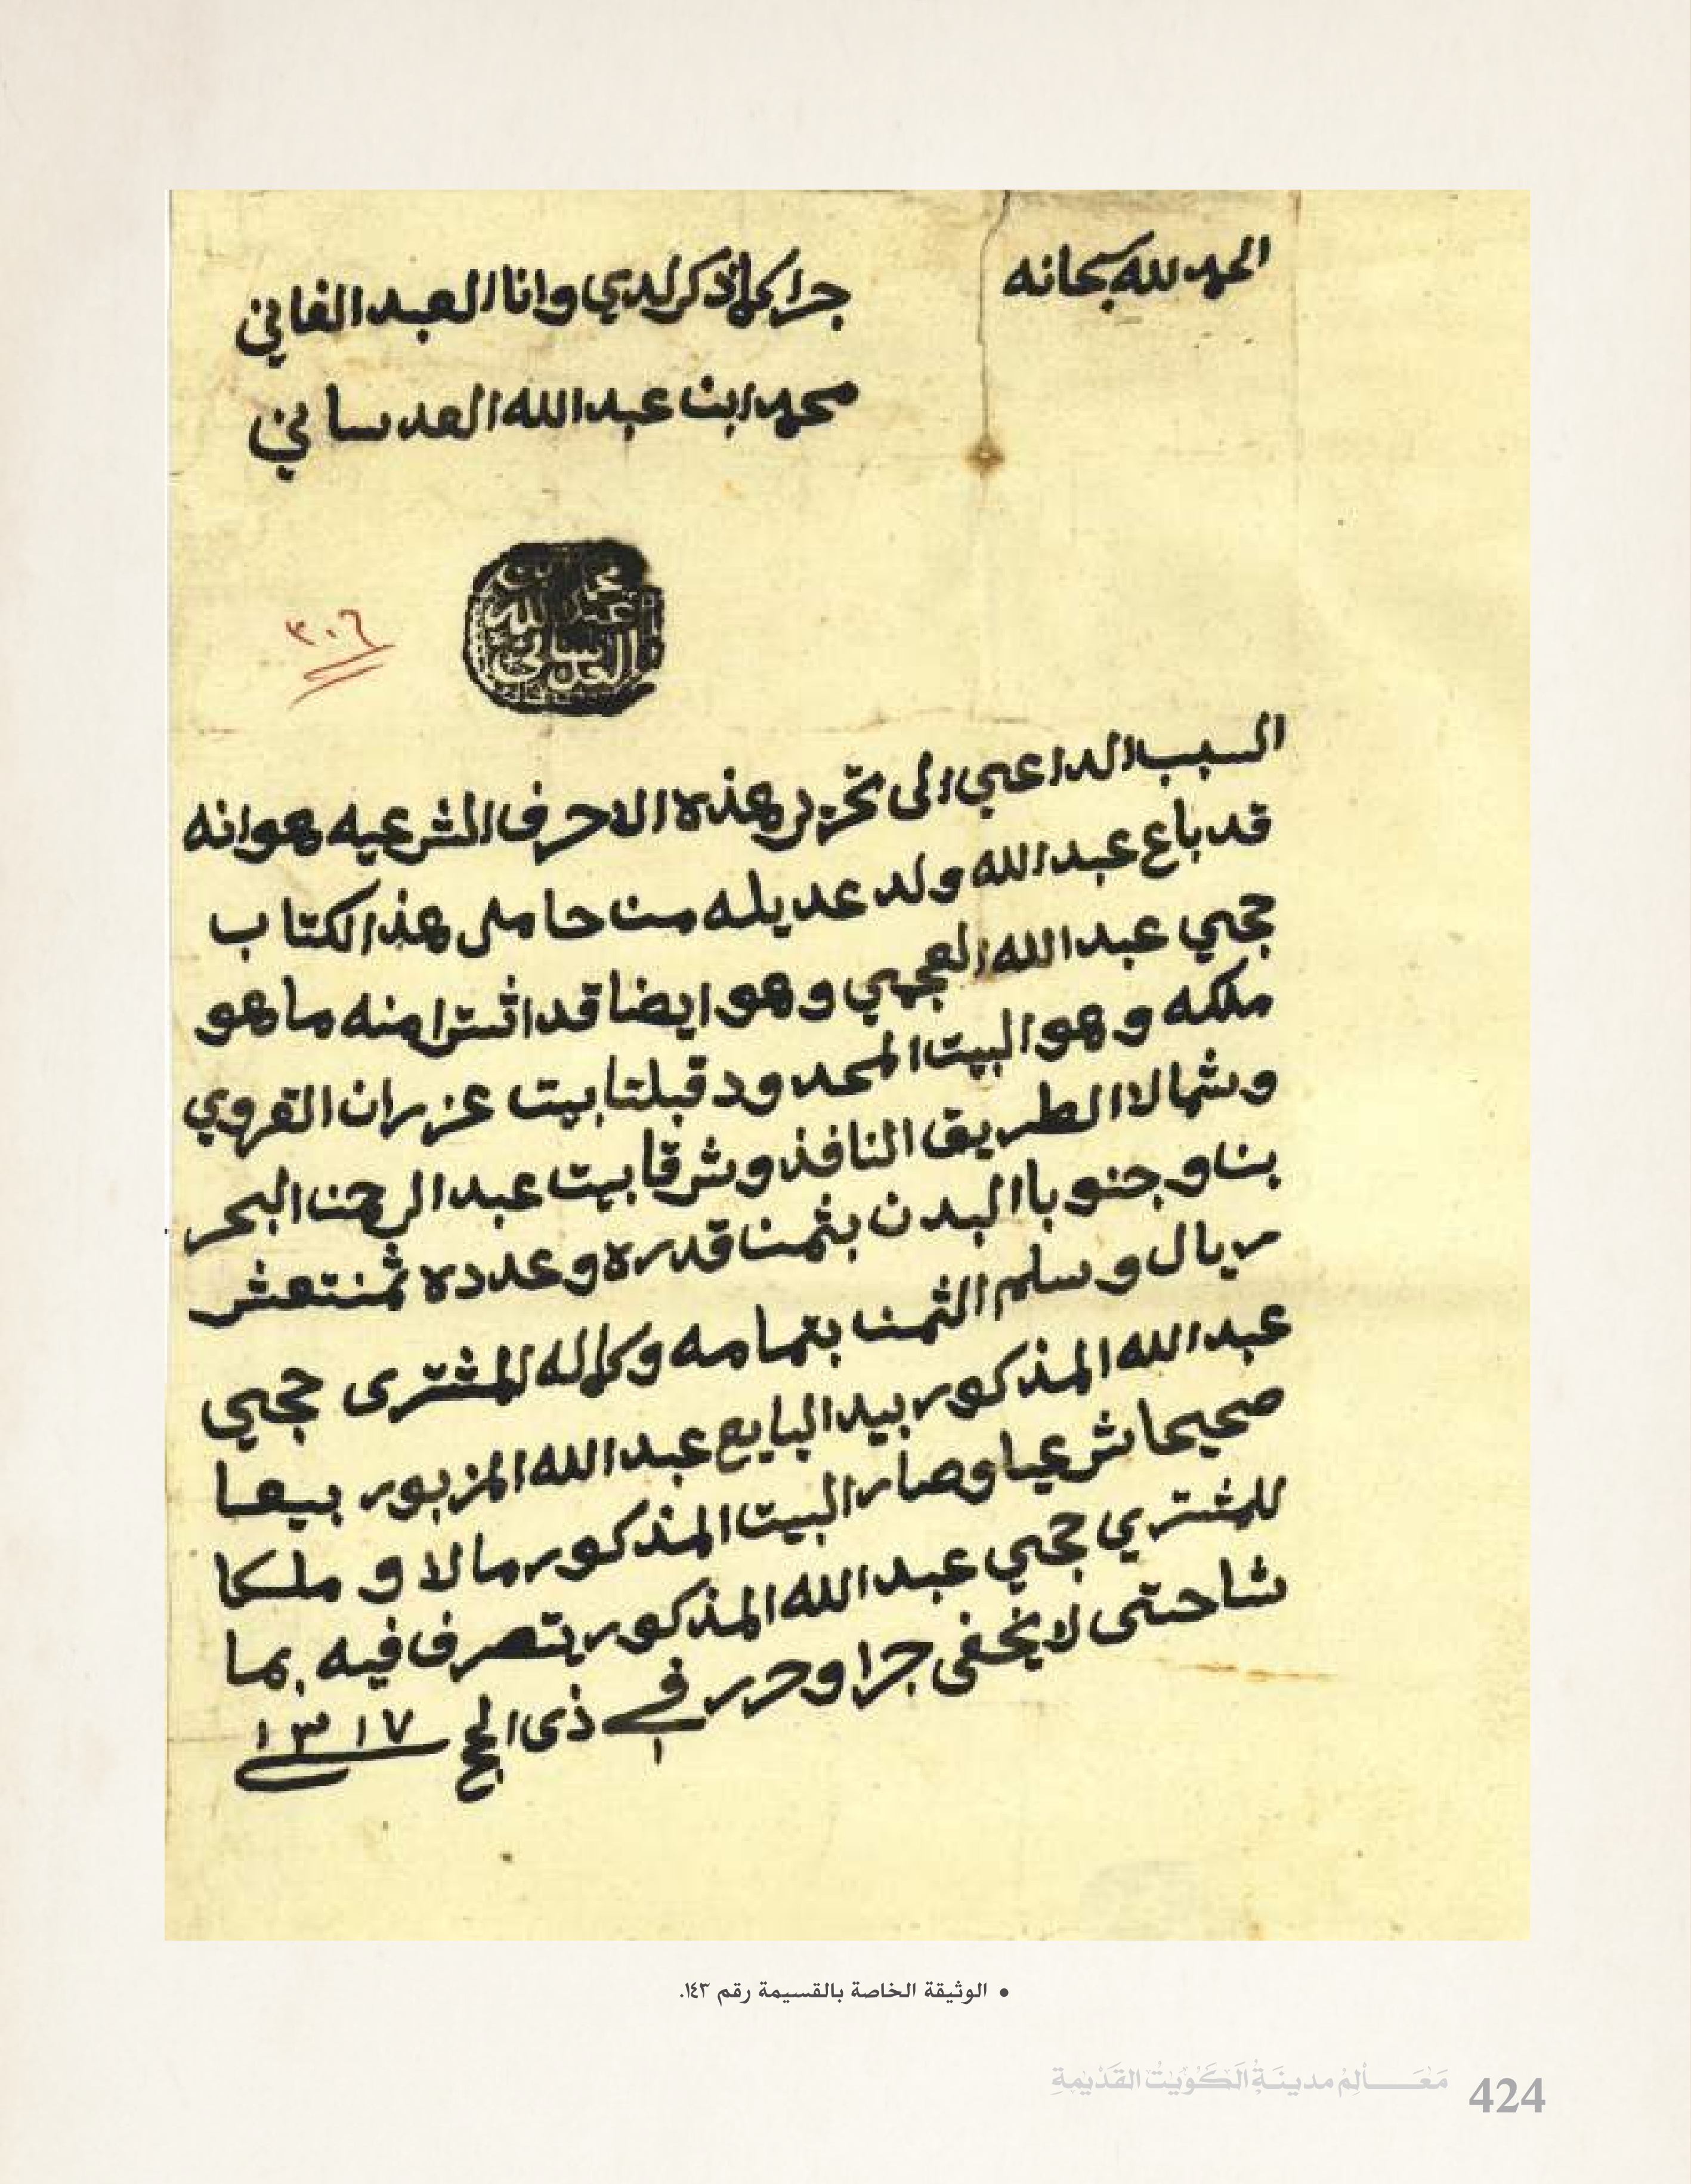 الحمد لله سبحانه
جرا كما ذكر لدي وانا العبد الفاني
محمد ابن عبدالله العدساني
محمد بن
عبدالله
العدساني
٣٠٦
السبب الداعي الى تحرير هذه الاحرف الشرعيه هو انه
قد باع عبدالله ولد عديله من حامل هذ الكتاب
حجي عبدالله العجمي وهو ايضا قد اشترا منه ما هو
ملكه وهو البيت المحدود قبلتا بيت عزران القروي
وشمالا الطريق النافذ وشرقا بيت عبدالرحمن البحر
بن او جنوبا البدن بثمن قدره وعدده ثمنتعشر
ريال وسلم الثمن بتمامه وكماله المشترى حجي
عبدالله المذكور بيد البايع عبدالله المزبور بيعا
صحيحا شرعيا وصار البيت المذكور مالا و ملكا
للمشتري حجي عبدالله المذكور يتصرف فيه بما
شا حتى لا يخفى جرا وحرر في ذى الحج ١٣١٧
• الوثيقة الخاصة بالقسيمة رقم ١٤٣.
مَعَالِمُ مدينَةِ الكُوَيْتِ القَدِيمَةِ 424